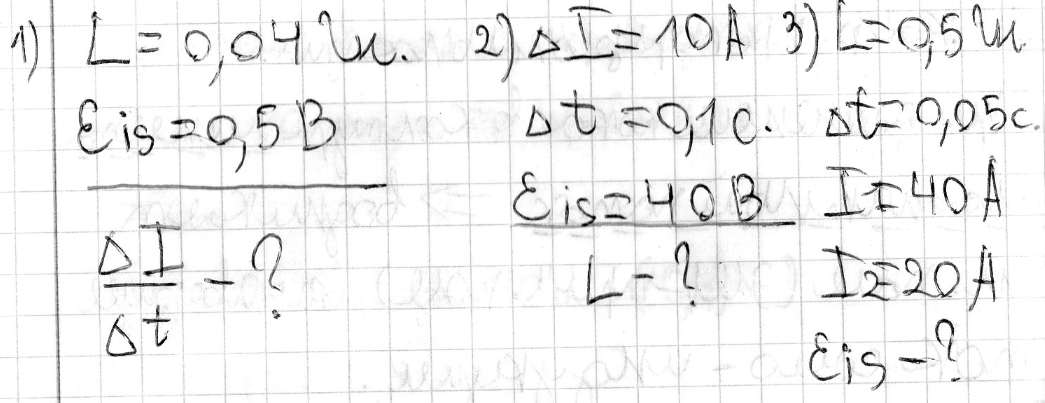 1) L = 0,04 Гн.
Eis = 0,5 В
ΔI/Δt - ?
2) ΔI = 10 А
Δt = 0,1 с.
Eis = 40 В
L - ?
3) L = 0,5 Гн
Δt = 0,05 с.
I = 40 А
I2 = 20 А
Eis - ?